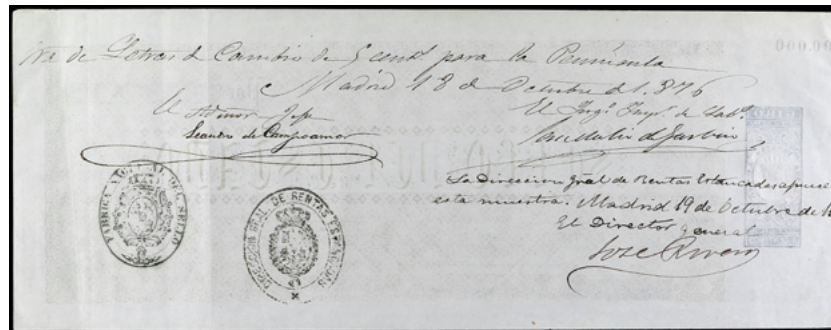 de Letras de Cambio de 5 cent.s para la Peninsula
Madrid 18 de Octubre de 1.876
El Admor Jefe
Leandro de Campoamor
El Ing.o Insp.r de Lab.s
La Direccion Gral de Rentas Estancadas
esta muestra. Madrid 19 de Octubre de
El Director general
Jose Rivero
FABRICA NACIONAL DEL SELLO
DIRECCION GRAL DE RENTAS ESTANCADAS
000.00